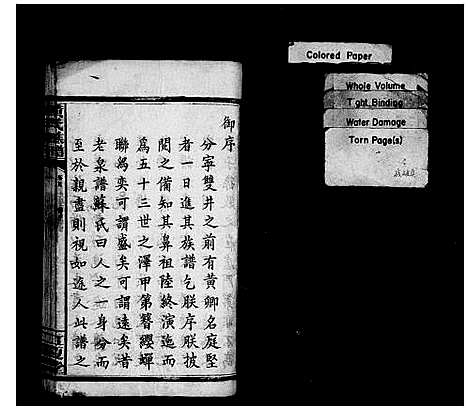 御序
分寧雙井之前有黄卿名庭堅
者一日進其族譜乞朕序朕披
閱之備知其鼻祖陸終演迤而
爲五十三世之澤甲第簪纓蟬
聯舄奕可謂盛矣可謂遠矣昔
老泉譜蘇氏曰人之一身分而
至於親盡則視如途人此譜之
Colored Paper
Whole Volume
Tight Binding
Water Damage
Torn Page(s)